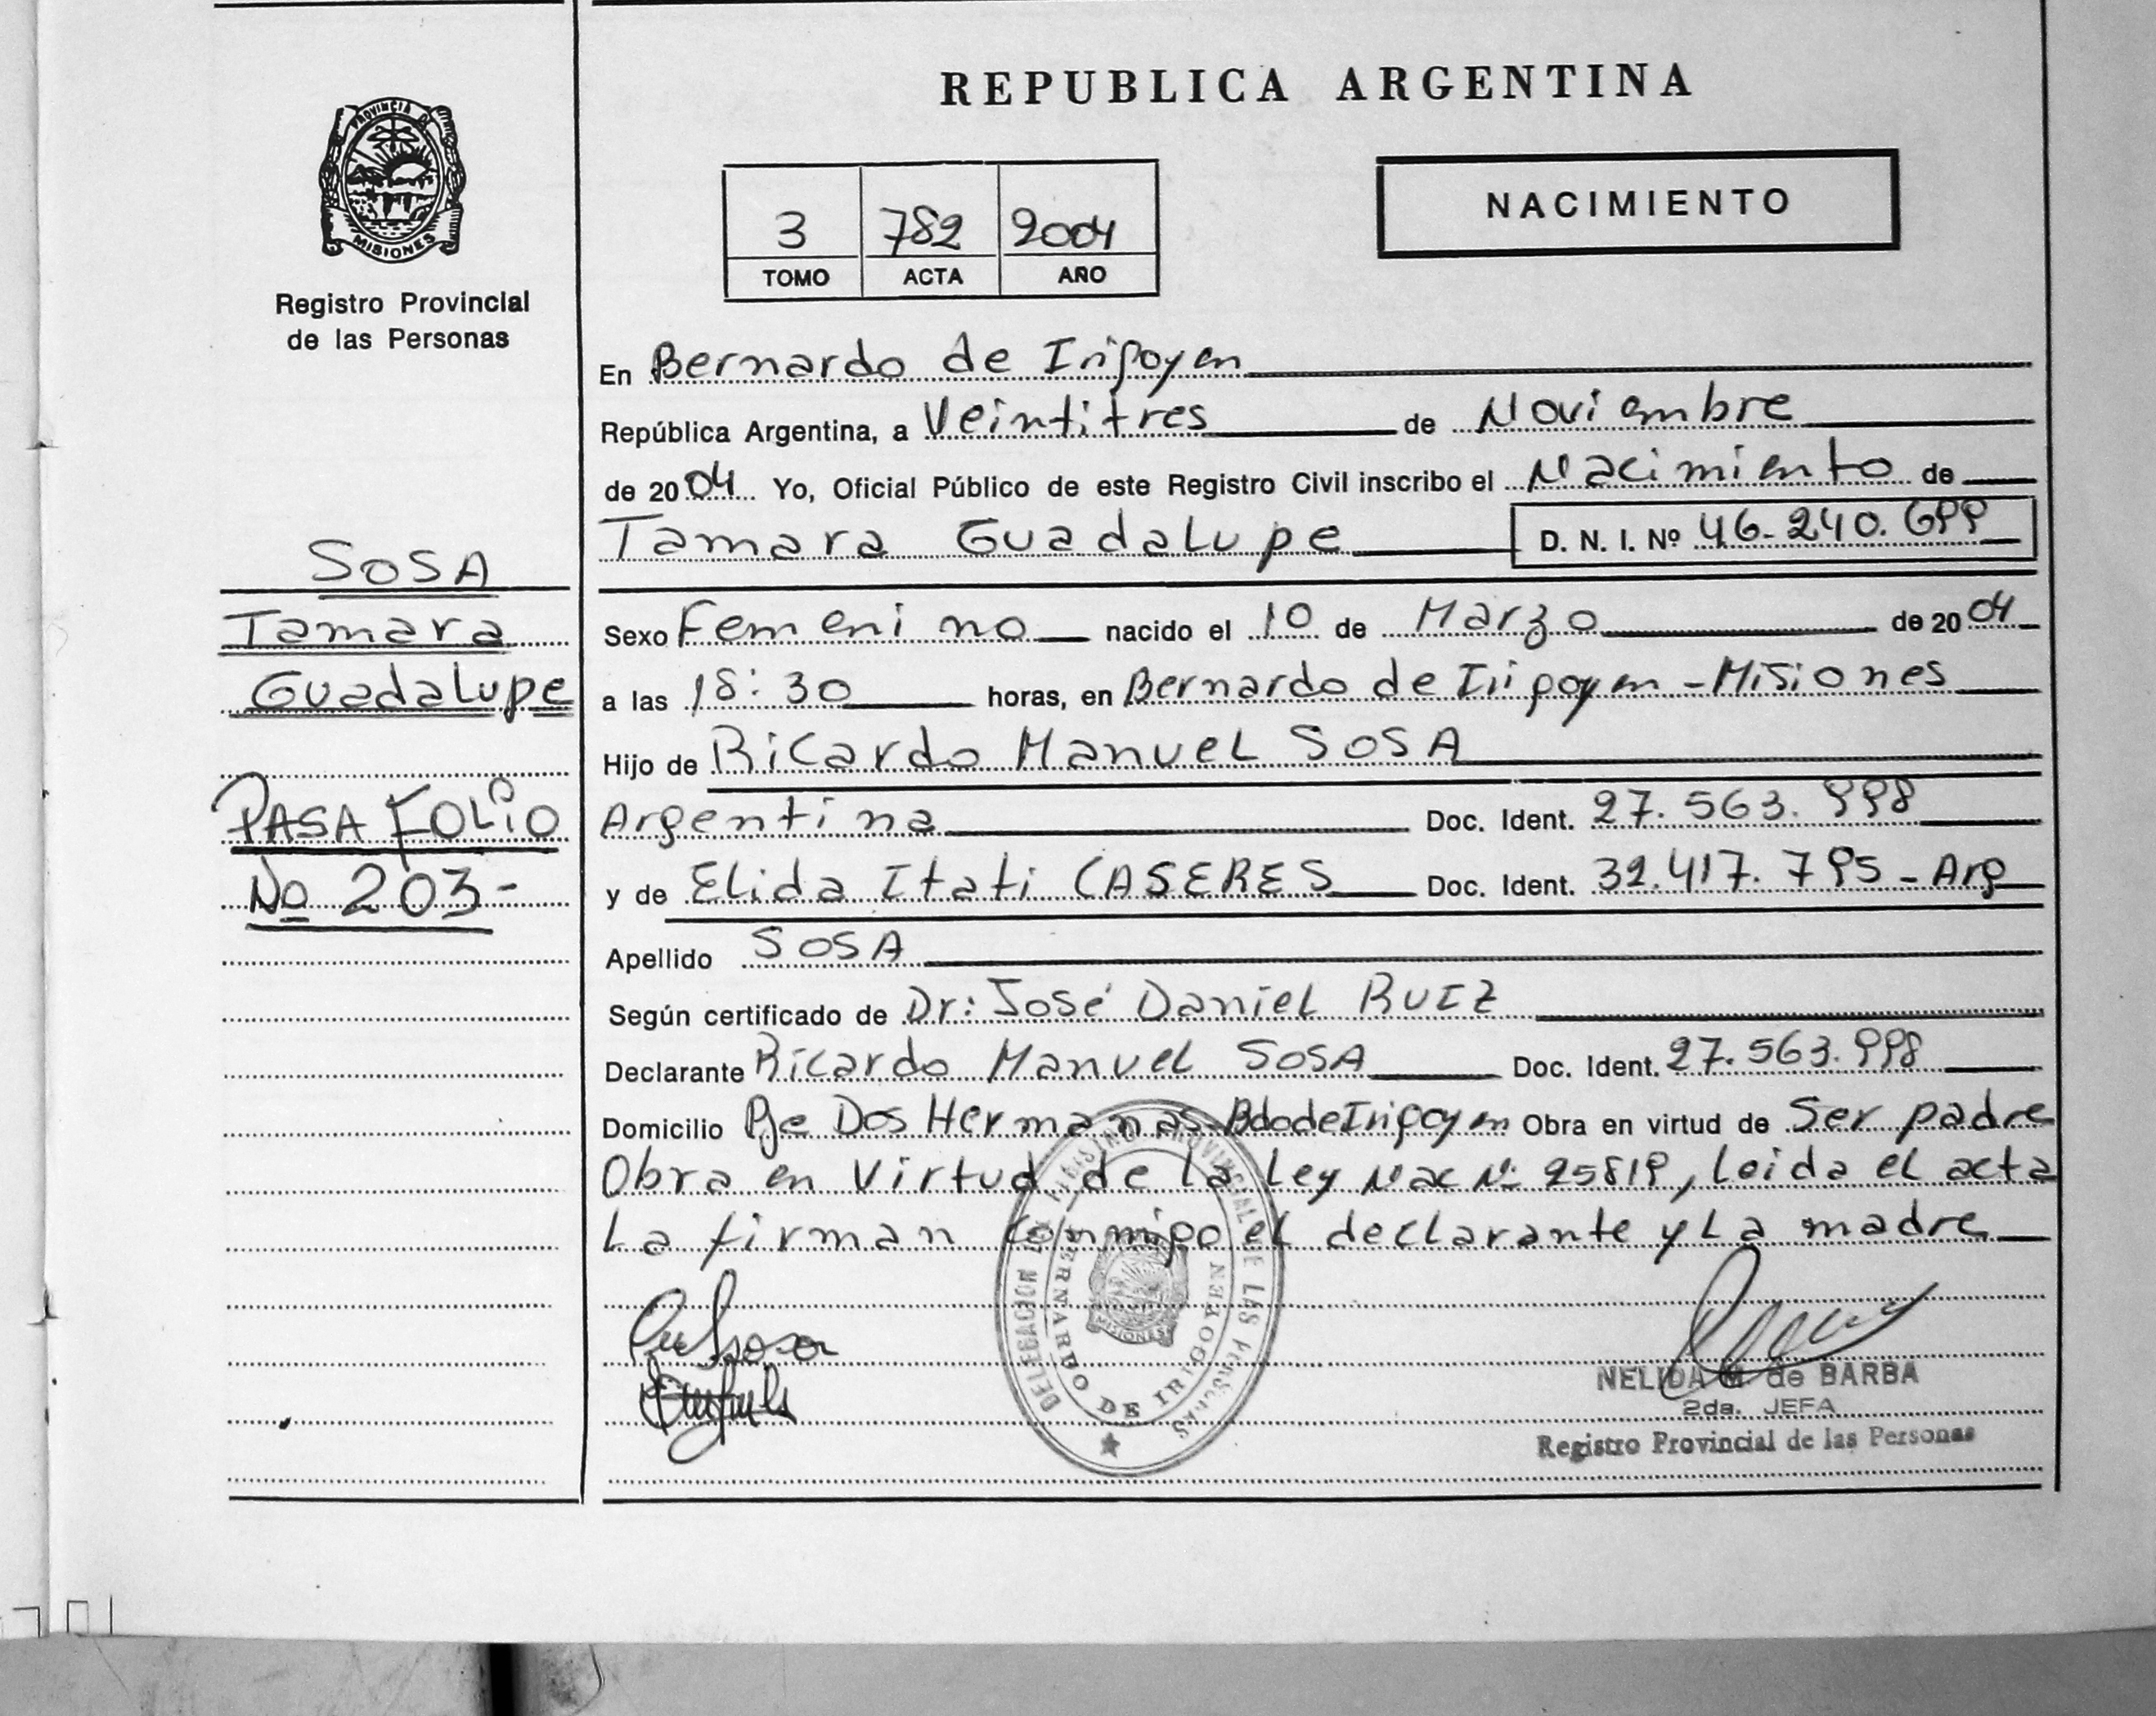 REPUBLICA ARGENTINA
PROVINCIA DE
MISIONES
Registro Provincial
de las Personas
3 782 2004
TOMO ACTA AÑO
NACIMIENTO
En Bernardo de Irigoyen
República Argentina, a Veintitres de Noviembre
de 2004 Yo, Oficial Público de este Registro Civil inscribo el Nacimiento de
Tamara Guadalupe D. N. I. Nº 46.240.699
SOSA
Tamara
Guadalupe
PASA FOLIO
Nº 203-
Sexo Femenino nacido el 10 de Marzo de 2004
a las 18:30 horas, en Bernardo de Irigoyen - Misiones
Hijo de Ricardo Manuel SOSA
Argentina Doc. Ident. 27.563.998
y de Elida Itati CASERES Doc. Ident. 32.417.795 - Arg
Apellido SOSA
Según certificado de Dr: José Daniel RUIZ
Declarante Ricardo Manuel SOSA Doc. Ident. 27.563.998
Domicilio Pje Dos Hermanas-Bdo de Irigoyen Obra en virtud de Ser padre
Obra en Virtud de la Ley Nac Nº 25819, leida el acta
La firman conmigo el declarante y La madre
DELEGACION DEL REGISTRO PROVINCIAL DE LAS PERSONAS
BERNARDO DE IRIGOYEN
MISIONES
NELIDA M. de BARBA
2da. JEFA
Registro Provincial de las Personas